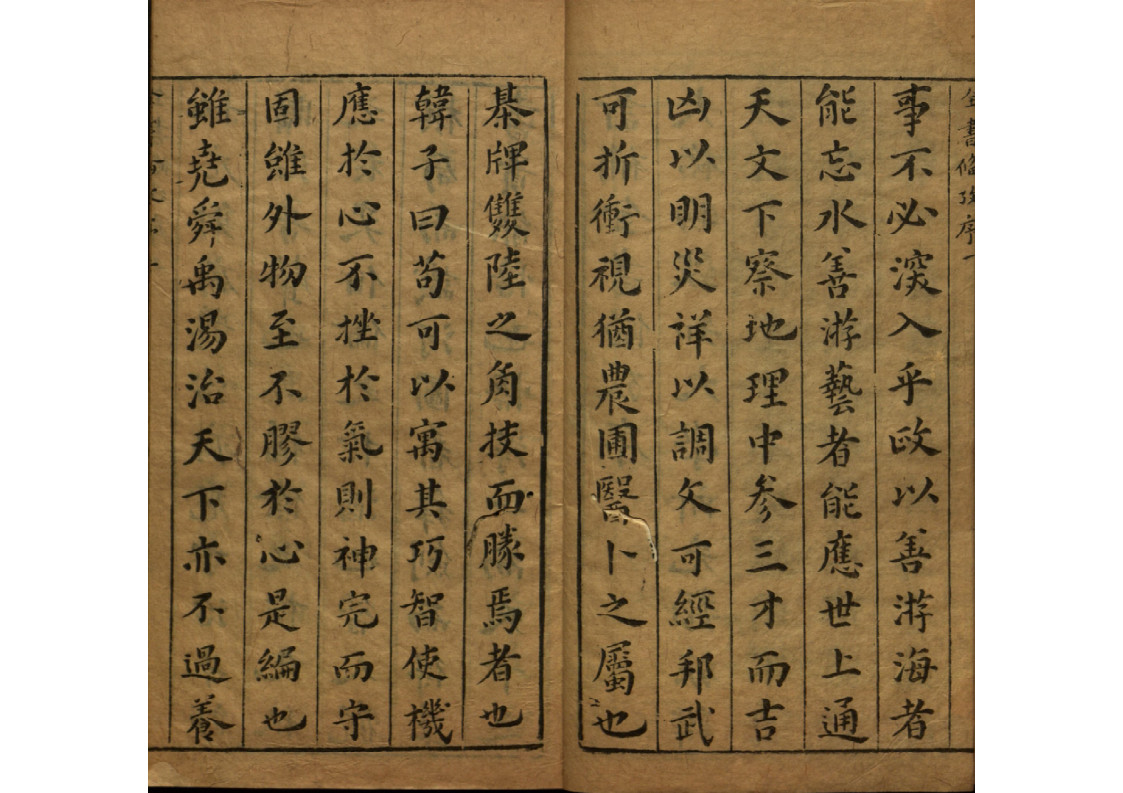 事不必深入乎政以善游海者
能忘水善游藝者能應世上通
天文下察地理中参三才而吉
凶以明災祥以調文可經邦武
可折衝視猶農圃醫卜之屬也
棊牌雙陸之角技而勝焉者也
韓子曰苟可以寓其巧智使機
應於心不挫於氣則神完而守
固雖外物至不膠於心是編也
雖堯舜禹湯治天下亦不過養